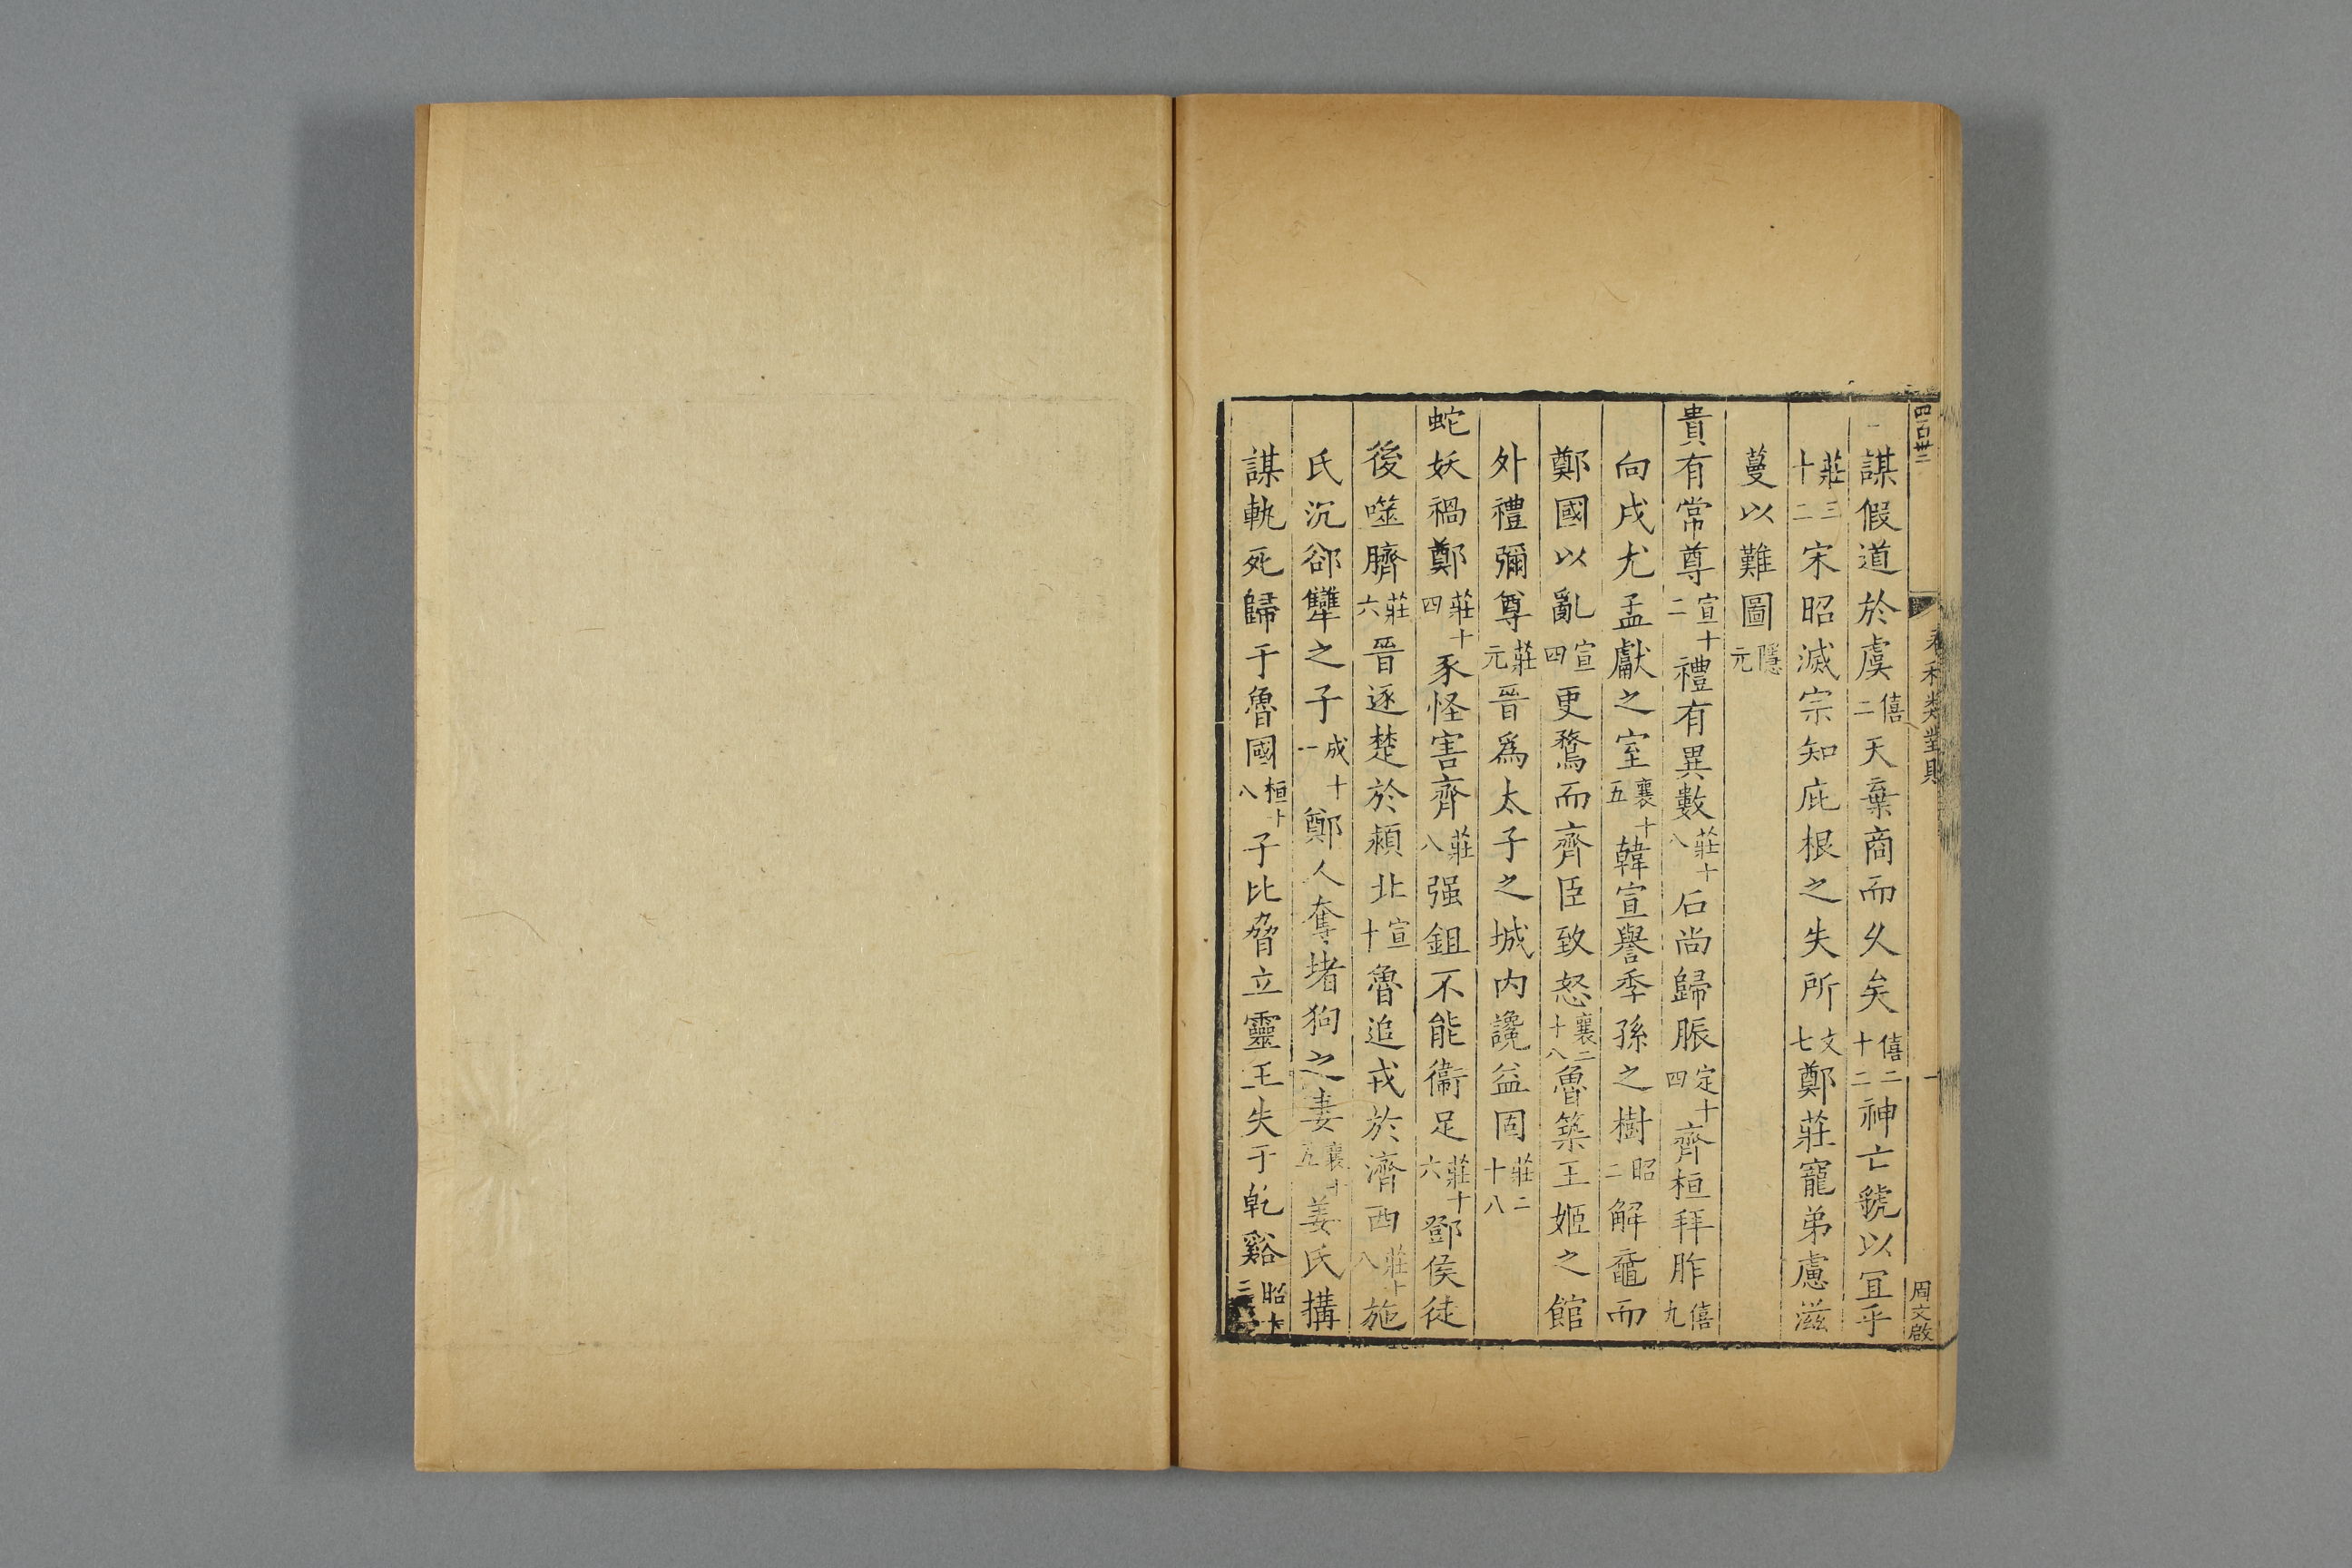 四百卅二
春秋類對賦
一
周文啟
謀假道於虞僖二天棄商而久矣僖二十二神亡虢以宜乎
莊三十二宋昭滅宗知庇根之失所文七鄭莊寵弟慮滋
蔓以難圖隱元
貴有常尊宣十二禮有異數莊十八石尚歸脤定十四齊桓拜胙僖九
向戌尤孟獻之室襄十五韓宣譽季孫之樹昭二解黿而
鄭國以亂宣四更鶩而齊臣致怒襄二十八魯築王姬之館
外禮彌尊莊元晉爲太子之城内讒益固莊二十八
蛇妖禍鄭莊十四豕怪害齊莊八强鉏不能衞足莊十六鄧侯徒
後噬臍莊六晉逐楚於潁北宣十魯追戎於濟西莊十八施
氏沉郤犨之子成十一鄭人奪堵狗之妻襄十五姜氏搆
謀軌死歸于魯國桓十八子比脅立靈王失于乾谿昭十三